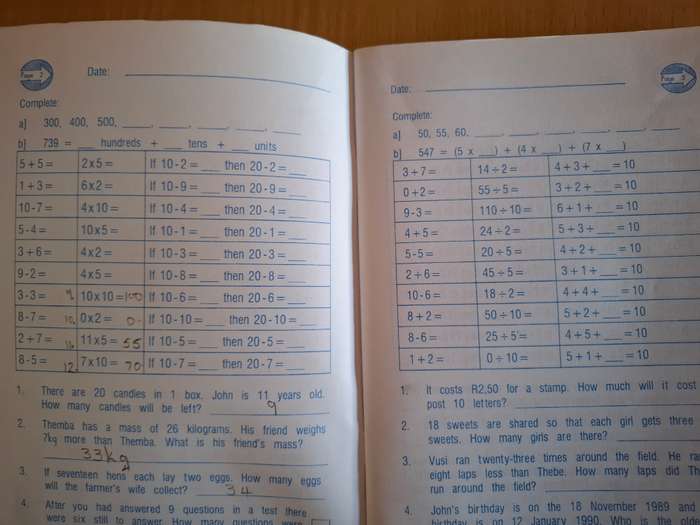 Page 2
Date:
Complete:
a] 300, 400, 500, ____, ____, ____, ____, ____
b] 739 = ___ hundreds + ___ tens + ___ units
5 + 5 = 2 x 5 = If 10 - 2 = ___ then 20 - 2 = ___
1 + 3 = 6 x 2 = If 10 - 9 = ___ then 20 - 9 = ___
10 - 7 = 4 x 10 = If 10 - 4 = ___ then 20 - 4 = ___
5 - 4 = 10 x 5 = If 10 - 1 = ___ then 20 - 1 = ___
3 + 6 = 4 x 2 = If 10 - 3 = ___ then 20 - 3 = ___
9 - 2 = 4 x 5 = If 10 - 8 = ___ then 20 - 8 = ___
3 - 3 = 10 x 10 = 100 If 10 - 6 = ___ then 20 - 6 = ___
8 - 7 = 0 x 2 = 0 If 10 - 10 = ___ then 20 - 10 = ___
2 + 7 = 11 x 5 = 55 If 10 - 5 = ___ then 20 - 5 = ___
8 - 5 = 12 7 x 10 = 70 If 10 - 7 = ___ then 20 - 7 = ___
1. There are 20 candies in 1 box. John is 11 years old.
How many candies will be left? 9
2. Themba has a mass of 26 kilograms. His friend weighs
7kg more than Themba. What is his friend's mass?
33kg
3. If seventeen hens each lay two eggs. How many eggs
will the farmer's wife collect? 34
4. After you had answered 9 questions in a test there
were six still to answer. How many questions were
Date:
Page 3
Complete:
a] 50, 55, 60, ____, ____, ____, ____, ____, ____
b] 547 = (5 x ___) + (4 x ___) + (7 x ___)
3 + 7 = 14 ÷ 2 = 4 + 3 + ___ = 10
0 + 2 = 55 ÷ 5 = 3 + 2 + ___ = 10
9 - 3 = 110 ÷ 10 = 6 + 1 + ___ = 10
4 + 5 = 24 ÷ 2 = 5 + 3 + ___ = 10
5 - 5 = 20 ÷ 5 = 4 + 2 + ___ = 10
2 + 6 = 45 ÷ 5 = 3 + 1 + ___ = 10
10 - 6 = 18 ÷ 2 = 4 + 4 + ___ = 10
8 + 2 = 50 ÷ 10 = 5 + 2 + ___ = 10
8 - 6 = 25 ÷ 5 = 4 + 5 + ___ = 10
1 + 2 = 0 ÷ 10 = 5 + 1 + ___ = 10
1. It costs R2,50 for a stamp. How much will it cost
post 10 letters?
2. 18 sweets are shared so that each girl gets three
sweets. How many girls are there?
3. Vusi ran twenty-three times around the field. He ra
eight laps less than Thebe. How many laps did Th
run around the field?
4. John's birthday is on the 18 November 1989 and
birthday is on 12 January 1990. is the